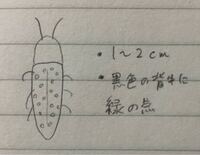 ・1〜2cm
・黒色の背中に
緑の点